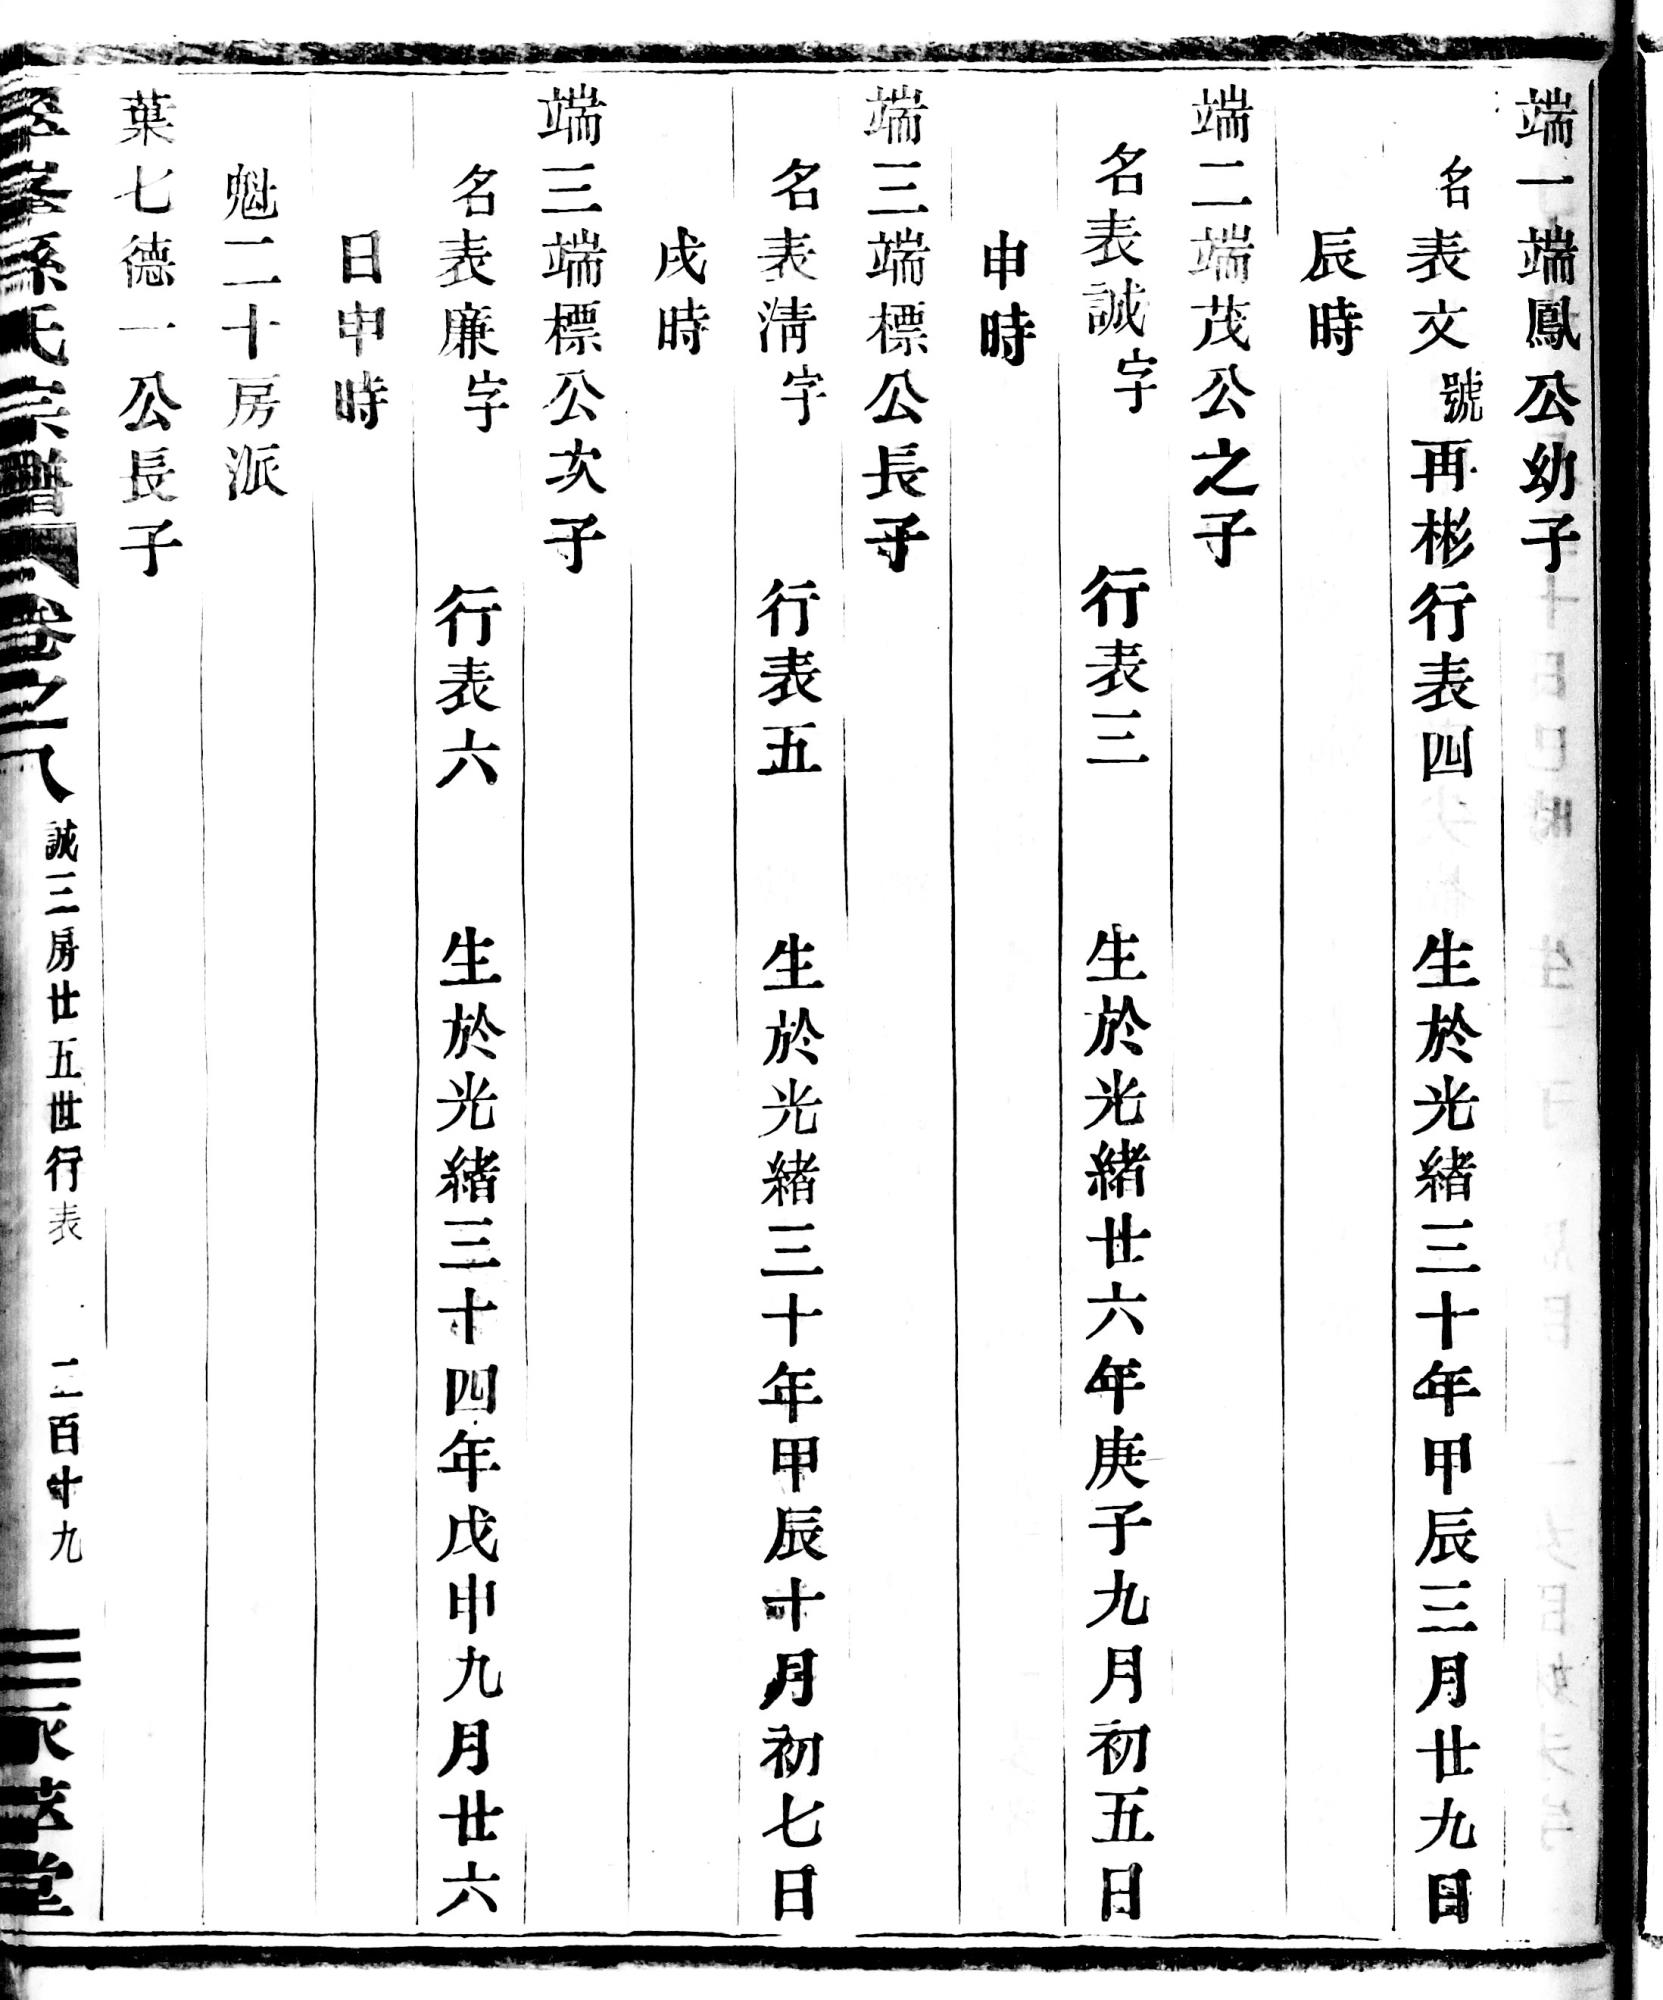 端一端鳳公幼子
名表文號再彬行表四 生於光緒三十年甲辰三月廿九日
辰時
端二端茂公之子
名表誠字 行表三 生於光緒廿六年庚子九月初五日
申時
端三端標公長子
名表清字 行表五 生於光緒三十年甲辰十月初七日
戌時
端三端標公次子
名表廉字 行表六 生於光緒三十四年戊申九月廿六
日申時
魁二十房派
葉七德一公長子
孫氏宗譜 卷之八 誠三房廿五世行表 二百十九 堂